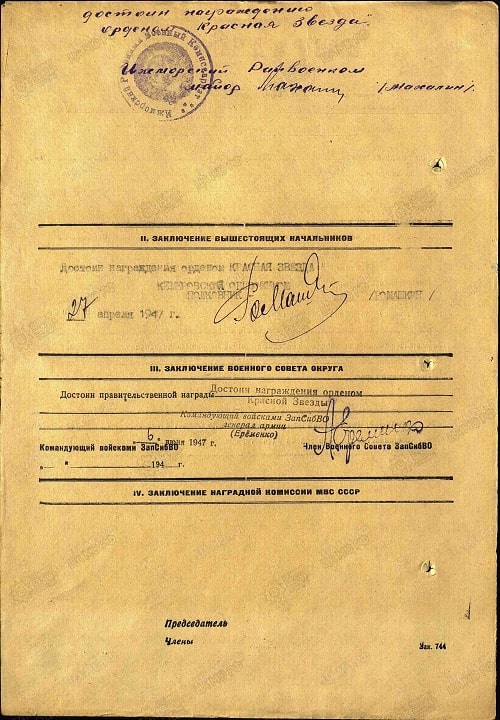 достоин награждению
орденом "Красная Звезда".
Ижморский Райвоенком
майор (Махалин).
II. ЗАКЛЮЧЕНИЕ ВЫШЕСТОЯЩИХ НАЧАЛЬНИКОВ
Достоин награждения орденом КРАСНАЯ ЗВЕЗДА
КЕМЕРОВСКИЙ
ПОЛКОВНИК /РОМАШКИН/
27 апреля 1947 г.
III. ЗАКЛЮЧЕНИЕ ВОЕННОГО СОВЕТА ОКРУГА
Достоин правительственной награды Достоин награждения орденом
Красной Звезды
Командующий войсками ЗапСибВО
генерал армии
(Ерёменко)
6. июня 1947 г.
Командующий войсками ЗапСибВО Член Военного Совета ЗапСибВО
" " 194 г.
IV. ЗАКЛЮЧЕНИЕ НАГРАДНОЙ КОМИССИИ МВС СССР
Председатель
Члены
Зак. 744